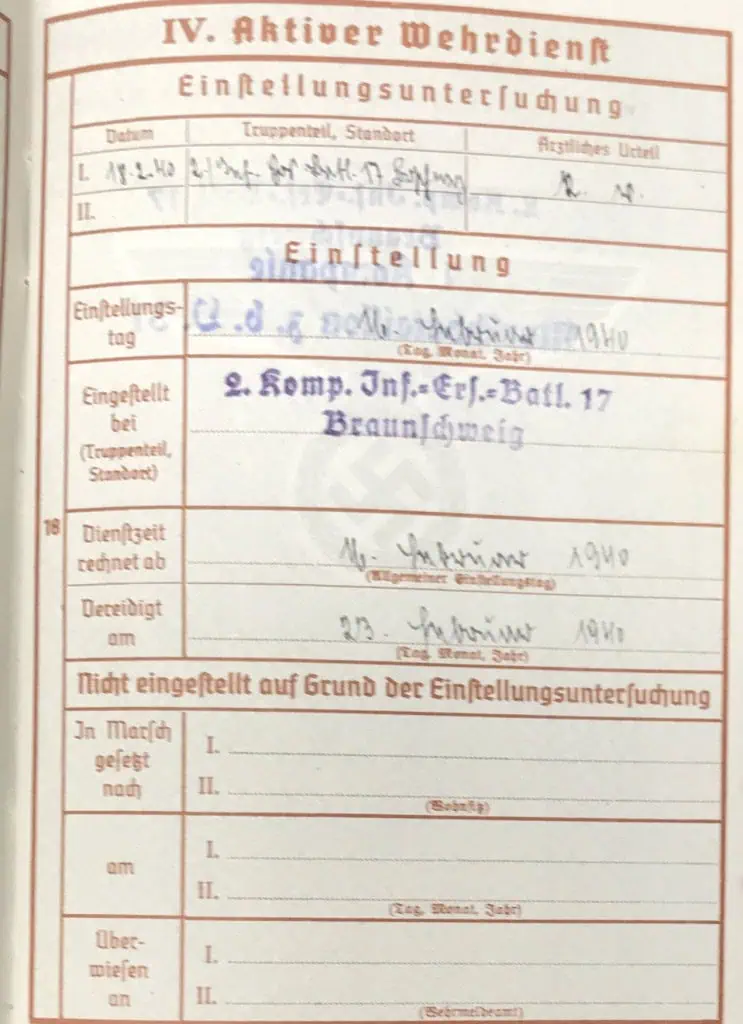 IV. Aktiver Wehrdienst
Einstellungsuntersuchung
Datum Truppenteil, Standort Ärztliches Urteil
I. 18.2.40 2./Inf. Ers. Batl. 17
II.
Einstellung
Einstellungs-
tag
16. Februar 1940
(Tag, Monat, Jahr)
Eingestellt
bei
(Truppenteil,
Standort)
2. Komp. Inf.=Ers.=Batl. 17
Braunschweig
18
Dienstzeit
rechnet ab
16. Februar 1940
(Allgemeiner Einstellungstag)
Vereidigt
am
23. Februar 1940
(Tag, Monat, Jahr)
Nicht eingestellt auf Grund der Einstellungsuntersuchung
In Marsch
gesetzt
nach
I.
II.
(Wohnsitz)
am
I.
II.
(Tag, Monat, Jahr)
Über-
wiesen
an
I.
II.
(Wehrmeldeamt)